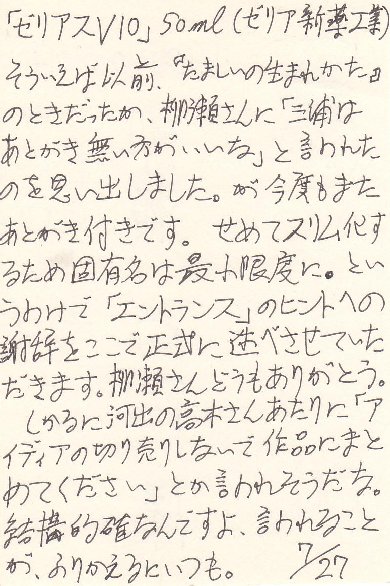 「ゼリアスV10」50ml(ゼリア新薬工業)
そういえば以前、『たましいの生まれかた』
のときだったか、柳瀬さんに「三浦は
あとがき無い方がいいな」と言われた
のを思い出しました。が今度もまた
あとがき付きです。せめてスリム化す
るため固有名は最小限度に。とい
うわけで「エントランス」のヒントへの
謝辞をここで正式に述べさせていた
だきます。柳瀬さんどうもありがとう。
しかるに河出の高木さんあたりに「ア
イディアの切り売りしないで作品にまと
めてください」とか言われそうだな。
結構的確なんですよ、言われること
が、ふりかえるにいつも。 7/27